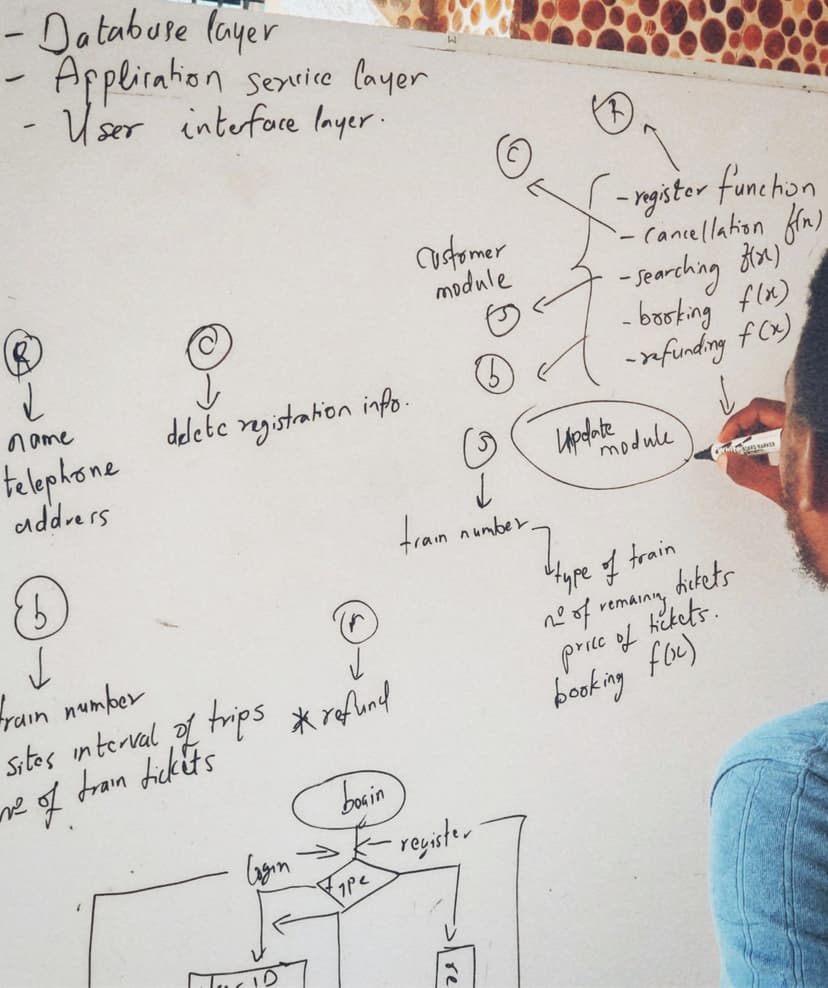 - Database layer
- Application service layer
- User interface layer.
R
C
customer
module
- register function
- cancellation f(n)
- searching f(x)
- booking f(x)
- refunding f(x)
S
b
R
name
telephone
address
C
delete registration info.
Update
module
S
train number
type of train
nº of remaining tickets
price of tickets.
booking f(x)
b
train number
sites interval of trips
nº of train tickets
r
* refund
login
register
type
ID
re